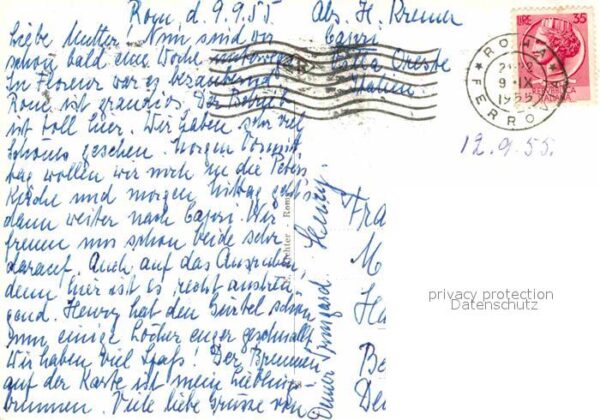 Rom, d. 9.9.55.
Liebe Mutter! Nun sind wir
schon bald eine Woche unterwegs.
In Florenz war es bezaubernd
Rom ist grandios. Der Betrieb
ist toll hier. Wir haben sehr viel
Schönes gesehen. Morgen Vormit-
tag wollen wir noch in die Peters-
kirche und morgen Mittag geht's
dann weiter nach Capri. Wir
freuen uns schon beide sehr
darauf. Auch auf das Ausruhen,
denn hier ist es recht anstren-
gend. Henry hat den Gürtel schon
um einige Löcher enger geschnallt
Wir haben viel Spaß! Der Brunnen
auf der Karte ist mein Lieblings-
brunnen. Viele liebe Grüsse von
Deiner Irmgard. Henry.
Abs. H.
Capri
Villa Oreste
Italien.
LIRE 35
REPVBBLICA
ITALIANA
ROMA
9 IX
1955
FERROVIA
12.9.55.
Rom
Fra
M
Ha
Be
De
privacy protection
Datenschutz